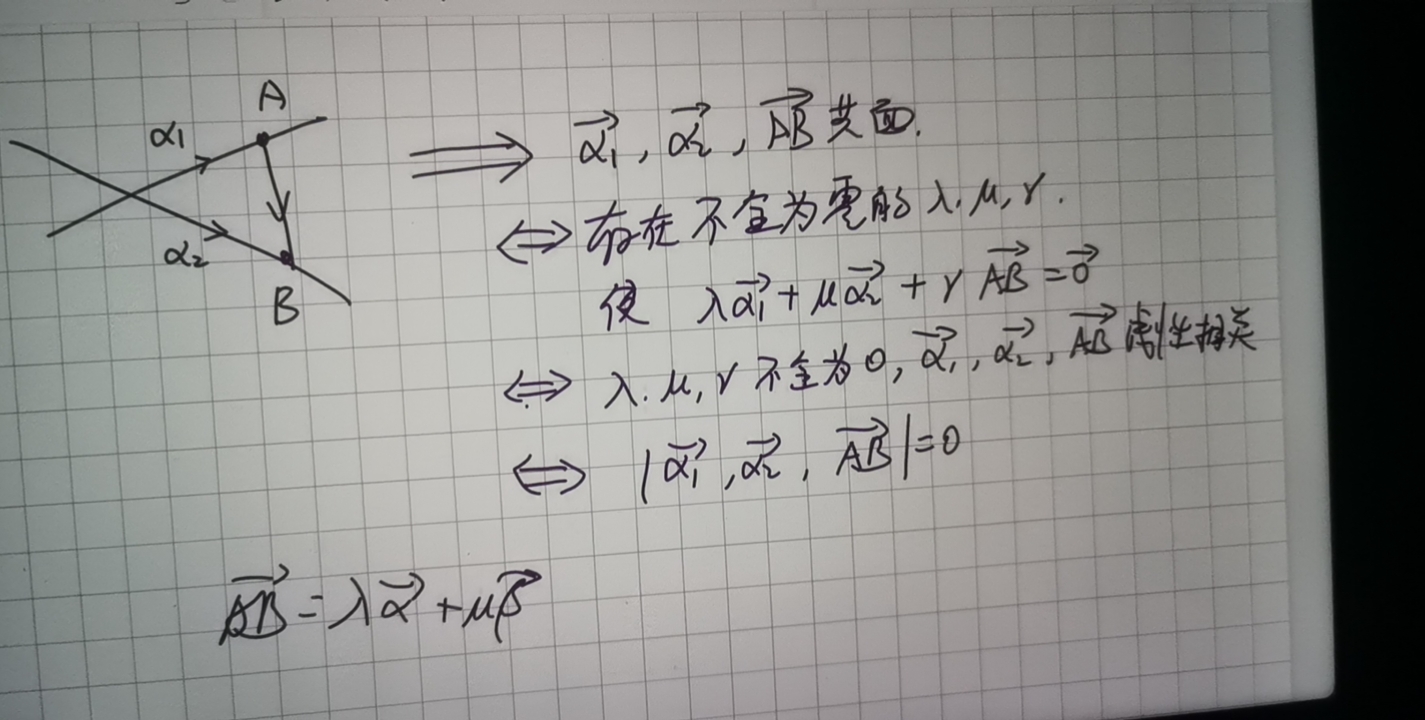 A
α1
α2
B
⟹ α₁⃗, α₂⃗, AB⃗ 共面.
⟺ 存在不全为零的 λ. μ, γ.
使 λα₁⃗ + μα₂⃗ + γ AB⃗ = 0⃗
⟺ λ. μ, γ 不全为 0, α₁⃗, α₂⃗, AB⃗ 线性相关
⟺ |α₁⃗, α₂⃗, AB⃗| = 0
AB⃗ = λα⃗ + μβ⃗